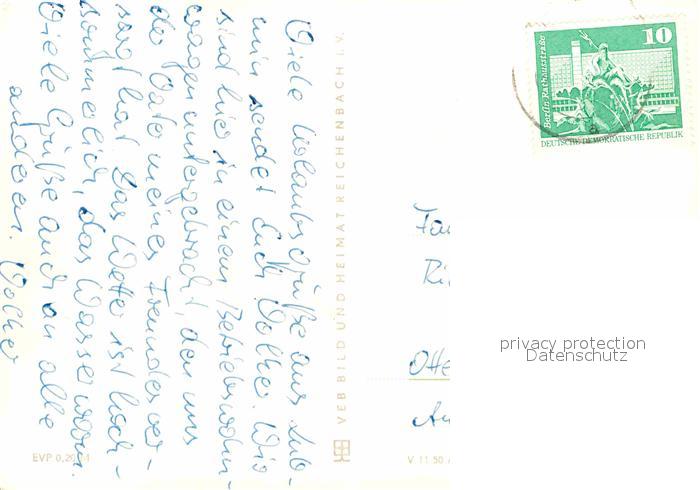 Viele Urlaubsgrüße aus Lub-
min sendet Euch Volker. Wir
sind hier in einem Betriebswohn-
wagen untergebracht, den uns
der Vater meines Freundes ver-
sorgt hat. Das Wetter ist hoch-
sommerlich, das Wasser warm.
Viele Grüße auch an alle
anderen. Volker
VEB BILD UND HEIMAT REICHENBACH I. V.
EVP 0,20
V 11 50
10
Berlin, Rathausstraße
DEUTSCHE DEMOKRATISCHE REPUBLIK
Fa
Ri
Otte
privacy protection
Datenschutz